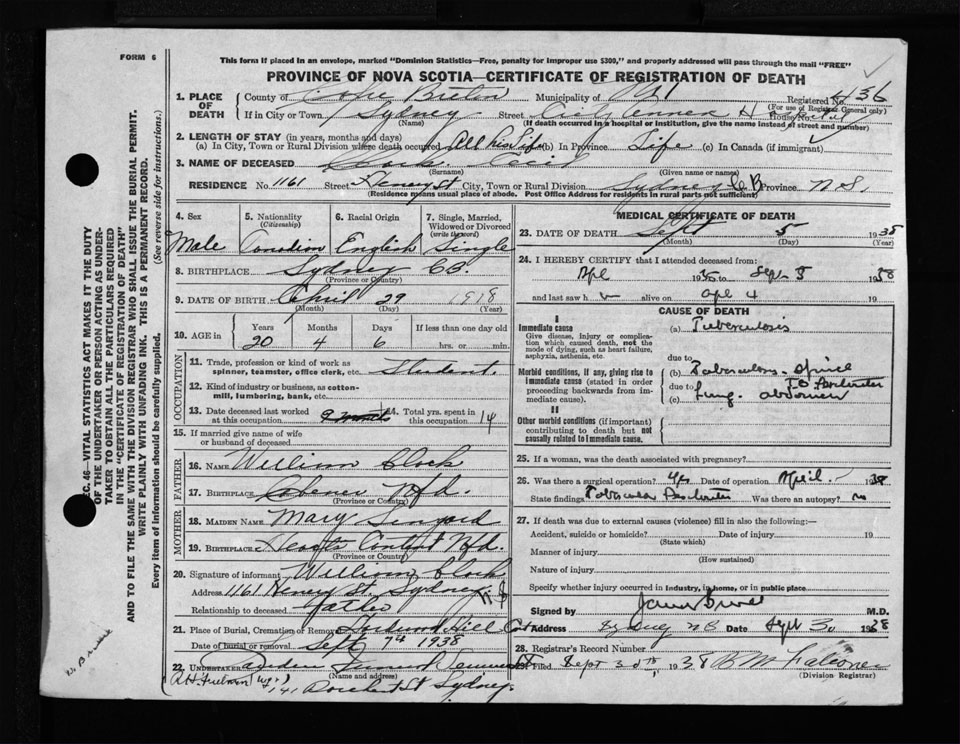 FORM 6
This form if placed in an envelope, marked "Dominion Statistics—Free, penalty for improper use $300," and properly addressed will pass through the mail "FREE"
PROVINCE OF NOVA SCOTIA—CERTIFICATE OF REGISTRATION OF DEATH
1. PLACE OF DEATH
County of Cape Breton Municipality of Registered No. 436
(For use of Registrar General only)
If in City or Town Sydney Street House No.
(Name) (If death occurred in a hospital or institution, give the name instead of street and number)
2. LENGTH OF STAY (in years, months and days)
(a) In City, Town or Rural Division where death occurred All his Life (b) In Province Life (c) In Canada (if immigrant)
3. NAME OF DECEASED
(Surname) (Given name or names)
RESIDENCE No. 1161 Street Henry St City, Town or Rural Division Sydney C B Province N.S.
(Residence means usual place of abode. Post Office Address for residents in rural parts not sufficient)
4. Sex
Male
5. Nationality
(Citizenship)
Canadian
6. Racial Origin
English
7. Single, Married, Widowed or Divorced
(write the word)
Single
8. BIRTHPLACE Sydney C.B.
(Province or Country)
9. DATE OF BIRTH April 29 1918
(Month) (Day) (Year)
10. AGE in Years Months Days If less than one day old
20 4 6 hrs. or min.
OCCUPATION
11. Trade, profession or kind of work as spinner, teamster, office clerk, etc. Student.
12. Kind of industry or business, as cotton-mill, lumbering, bank, etc.
13. Date deceased last worked at this occupation
14. Total yrs. spent in this occupation 14
15. If married give name of wife or husband of deceased
FATHER
16. Name William Clock
17. Birthplace Nfd.
(Province or Country)
MOTHER
18. MAIDEN NAME Mary
19. BIRTHPLACE Hearts Content Nfd.
(Province or Country)
20. Signature of informant William Clock
Address 1161 Henry St. Sydney N S
Relationship to deceased father
21. Place of Burial, Cremation or Removal Hill Cem
Date of burial or removal Sept 7th 1938
22. UNDERTAKER
(Name and address)
Dorchester St Sydney.
MEDICAL CERTIFICATE OF DEATH
23. DATE OF DEATH Sept 5 1938
(Month) (Day) (Year)
24. I HEREBY CERTIFY that I attended deceased from:
Apl 1935 to Sept 5 1938
and last saw h alive on apl 4 19
CAUSE OF DEATH
I
Immediate cause
Give disease, injury or complication which caused death, not the mode of dying, such as heart failure, asphyxia, asthenia, etc.
(a) Tuberculosis
due to
Morbid conditions, if any, giving rise to immediate cause (stated in order proceeding backwards from immediate cause).
(b) Tuberculosis - spine
due to
(c) Lung. abdomen
II
Other morbid conditions (if important) contributing to death but not causally related to immediate cause.
25. If a woman, was the death associated with pregnancy?
26. Was there a surgical operation? Date of operation April 1938
State findings Tubercular Peritonitis Was there an autopsy? no
27. If death was due to external causes (violence) fill in also the following:—
Accident, suicide or homicide? Date of injury 19
(State which)
Manner of injury
(How sustained)
Nature of injury
Specify whether injury occurred in industry, in home, or in public place
Signed by M.D.
Address Sydney Date Sept 30 1938
28. Registrar's Record Number
29. Filed Sept 30th 1938
(Division Registrar)
SEC. 46—VITAL STATISTICS ACT MAKES IT THE DUTY OF THE UNDERTAKER OR PERSON ACTING AS UNDERTAKER TO OBTAIN ALL THE PARTICULARS REQUIRED IN THE "CERTIFICATE OF REGISTRATION OF DEATH"
AND TO FILE THE SAME WITH THE DIVISION REGISTRAR WHO SHALL ISSUE THE BURIAL PERMIT.
(See reverse side for instructions.)
WRITE PLAINLY WITH UNFADING INK. THIS IS A PERMANENT RECORD.
Every item of information should be carefully supplied.